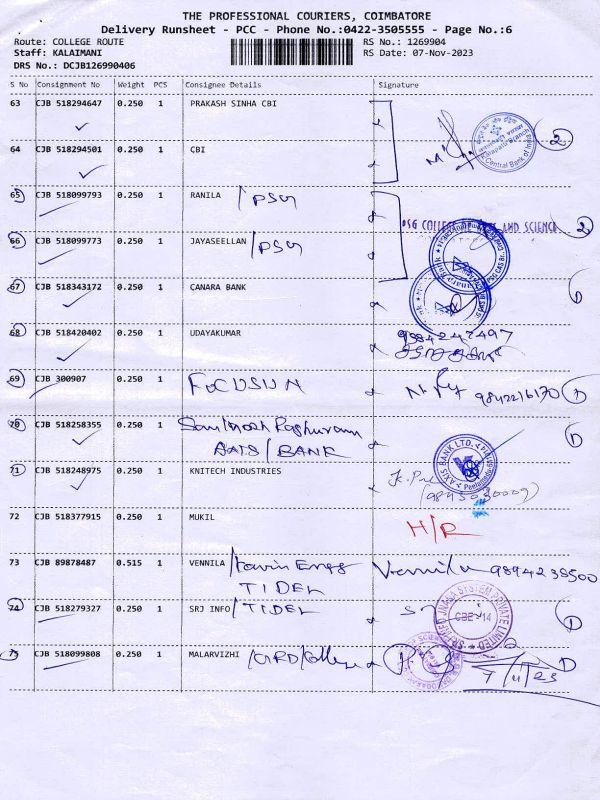 THE PROFESSIONAL COURIERS, COIMBATORE
Delivery Runsheet - PCC - Phone No.:0422-3505555 - Page No.:6
Route: COLLEGE ROUTE RS No.: 1269904
Staff: KALAIMANI RS Date: 07-Nov-2023
DRS No.: DCJB126990406
S No Consignment No Weight PCS Consignee Details Signature
63 CJB 518294647 0.250 1 PRAKASH SINHA CBI
64 CJB 518294501 0.250 1 CBI 2
Central Bank of India
65 CJB 518099793 0.250 1 RANILA /PSG
PSG COLLEGE ARTS AND SCIENCE 2
66 CJB 518099773 0.250 1 JAYASEELLAN /PSG
67 CJB 518343172 0.250 1 CANARA BANK
Canara Bank
68 CJB 518420402 0.250 1 UDAYAKUMAR
69 CJB 300907 0.250 1 FOCUSUN 9842216170
70 CJB 518258355 0.250 1 Santhosh Raghuram
AXIS/BANK
AXIS BANK LTD.
71 CJB 518248975 0.250 1 KNITECH INDUSTRIES
72 CJB 518377915 0.250 1 MUKIL H/R
73 CJB 89878487 0.515 1 VENNILA /Kavin Engg Vennila 9894238500
TIDEL
74 CJB 518279327 0.250 1 SRJ INFO /TIDEL
CBE-14
75 CJB 518099808 0.250 1 MALARVIZHI /GRD/College
7/11/23